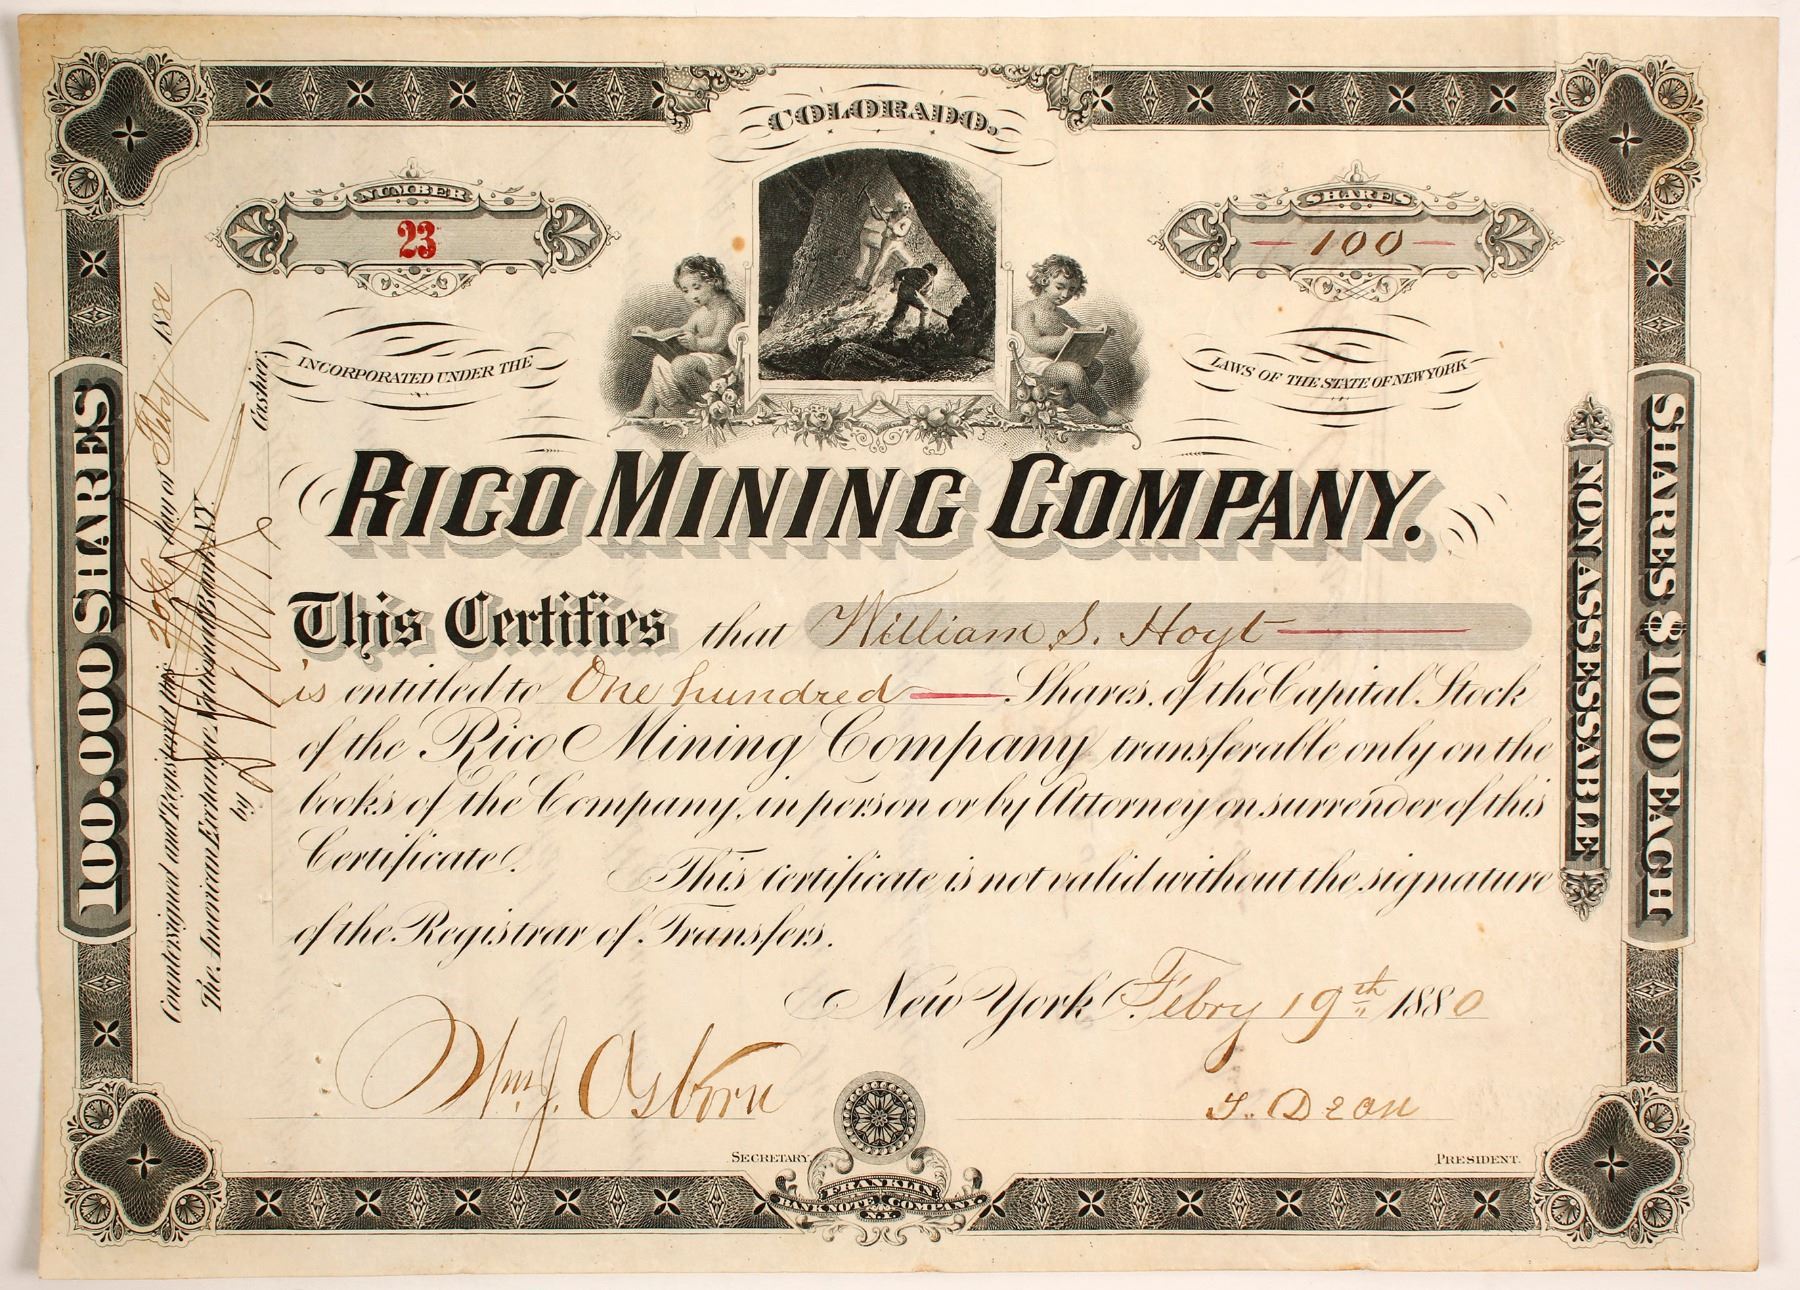 COLORADO.
NUMBER
23
SHARES
100
INCORPORATED UNDER THE
LAWS OF THE STATE OF NEW YORK
RICO MINING COMPANY.
This Certifies that William S. Hoyt
is entitled to One hundred Shares of the Capital Stock
of the Rico Mining Company transferable only on the
books of the Company, in person or by Attorney on surrender of this
Certificate. This certificate is not valid without the signature
of the Registrar of Transfers.
New York Febry 19th 1880
Wm. J. Osborn
SECRETARY.
PRESIDENT.
FRANKLIN
BANK NOTE COMPANY
N.Y.
100.000 SHARES
Countersigned and Registered this 20th day of Feby 1880
The American Exchange National Bank N.Y.
by Cashier.
NON ASSESSABLE
SHARES $100 EACH